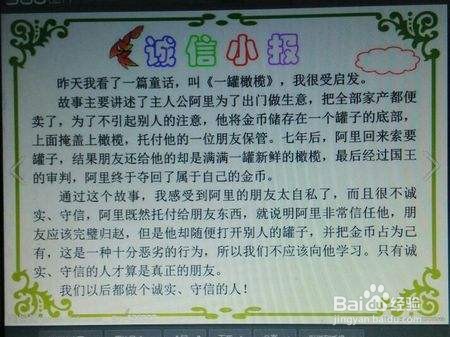 诚信小报
昨天我看了一篇童话，叫《一罐橄榄》，我很受启发。
故事主要讲述了主人公阿里为了出门做生意，把全部家产都便
卖了，为了不引起别人的注意，他将金币储存在一个罐子的底部，
上面掩盖上橄榄，托付他的一位朋友保管。七年后，阿里回来索要
罐子，结果朋友还给他的却是满满一罐新鲜的橄榄，最后经过国王
的审判，阿里终于夺回了属于自己的金币。
通过这个故事，我感受到阿里的朋友太自私了，而且很不诚
实、守信，阿里既然托付给朋友东西，就说明阿里非常信任他，朋
友应该完璧归赵，但是他却随便打开别人的罐子，并把金币占为己
有，这是一种十分恶劣的行为，所以我们不应该向他学习。只有诚
实、守信的人才算是真正的朋友。
我们以后都做个诚实、守信的人！
Bai度经验
jingyan.baidu.com